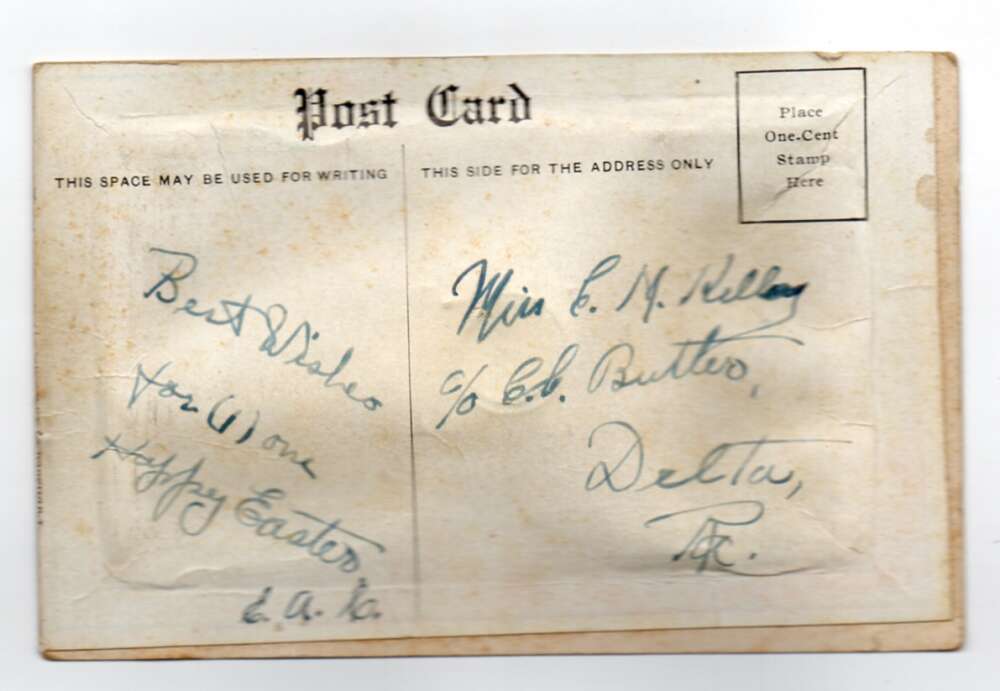 Post Card
THIS SPACE MAY BE USED FOR WRITING
THIS SIDE FOR THE ADDRESS ONLY
Place
One-Cent
Stamp
Here
Best Wishes
for (1) one
Happy Easter
E. A. K.
Miss E. M. Kelley
c/o C. C.
Delta,
Pa.